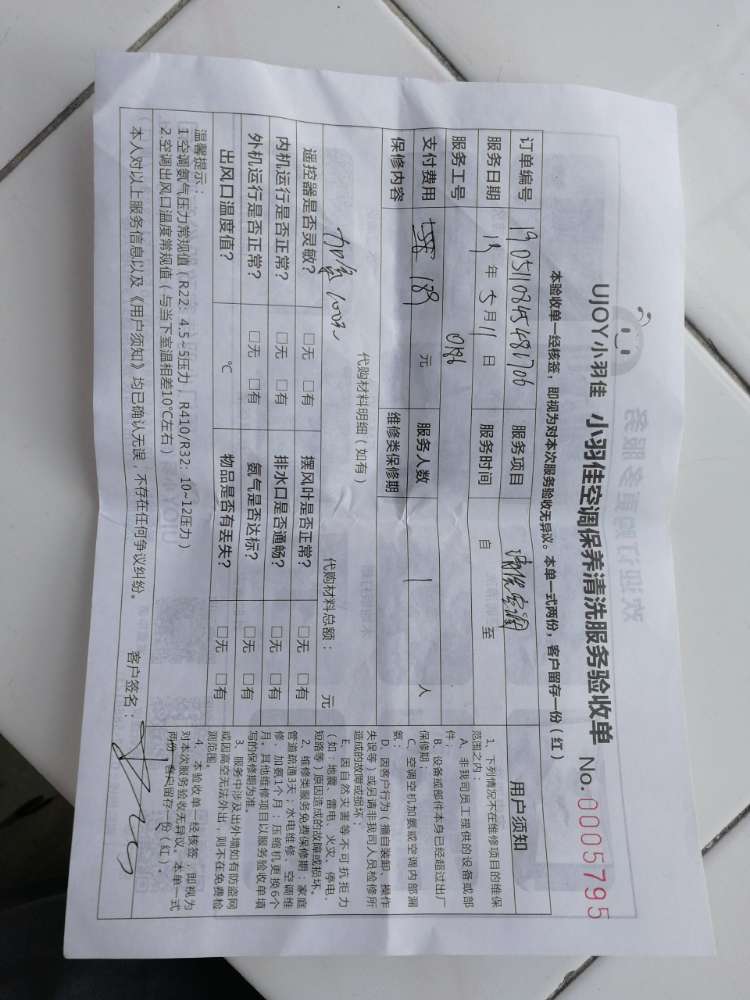 UJOY小羽佳 小羽佳空调保养清洗服务验收单 No.0005795
本验收单一经核签，即视为对本次服务验收无异议。本单一式两份，客户留存一份（红）
订单编号 服务项目
服务日期 19年5月11日 服务时间 自 至
服务工号 086
支付费用 189 元 服务人数 1 人
保修内容 维修类保修期
代购材料明细（如有） 代购材料总额： 元
加氨100元
遥控器是否灵敏？ □无 □有 摆风叶是否正常？ □无 □有
内机运行是否正常？ □无 □有 排水口是否通畅？ □无 □有
外机运行是否正常？ □无 □有 氨气是否达标？ □无 □有
出风口温度值？ ℃ 物品是否有丢失？ □无 □有
温馨提示：
1.空调氨气压力常规值（R22：4.5~5压力，R410/R32：10~12压力）
2.空调出风口温度常规值（与当下室温相差10℃左右）
本人对以上服务信息以及《用户须知》均已确认无误，不存在任何争议纠纷。 客户签名：
用户须知
1、下列情况不在维修项目的维保
范围之内：
A、非我司员工提供的设备或部
件；
B、设备或部件本身已经超过出厂
保修期；
C、空调空机加氨或空调内部漏
氨；
D、因客户行为（擅自装卸、操作
失误等）或另请非我司人员检修所
造成的故障或损坏；
E、因自然灾害等不可抗拒力
（如：地震、雷电、火灾、停电、
短路等）原因造成的故障或损坏。
2、维修类服务免费保修期：家庭
管道疏通3天；水电维修、空调维
修、加氨1个月；压缩机更换6个
月。其他维修项目以服务验收单填
写的保修期为准。
3、服务中涉及出外墙如有防盗网
或因高空无法外出，则不在免费检
测范围。
4、本验收单一经核签，即视为
对本次服务验收无异议，本单一式
两份，客户留存一份（红）。